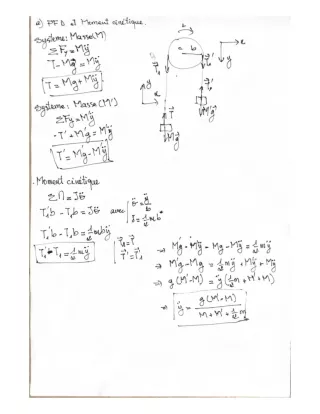 a) PFD et Moment cinétique.
Système: Masse(M)
ΣFy = Mÿ
T - Mg = Mÿ
T = Mg + Mÿ
Système: Masse (M')
ΣFy = M'ÿ
-T' + M'g = M'ÿ
T' = M'g - M'ÿ
. Moment cinétique
ΣM = Jθ̈
T₁'b - T₁b = Jθ̈ avec { θ̈ = ÿ/b
J = ½mb²
T₁'b - T₁b = ½mbÿ
T₁' - T₁ = ½mÿ
T₁ = T
T' = T₁'
⇒ M'g - M'ÿ - Mg - Mÿ = ½mÿ
⇒ M'g - Mg = ½mÿ + M'ÿ + Mÿ
⇒ g(M' - M) = ÿ(½m + M' + M)
⇒ ÿ = g(M' - M) / (M + M' + ½m)